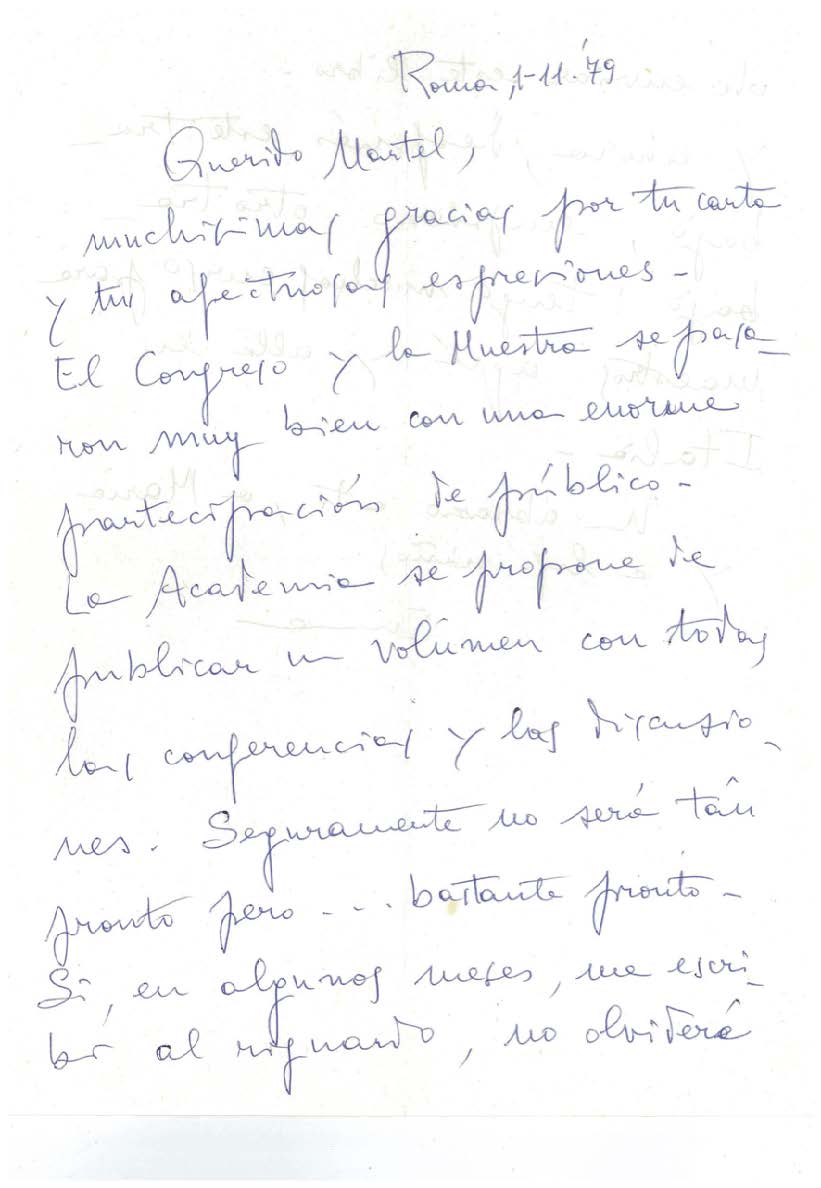 Roma, 1-11-'79
Querido Martel,
muchisimas gracias por tu carta
y tus afectuosas espresiones -
El Congreso y la Muestra se pasa-
ron muy bien con una enorme
partecipación de público -
La Academia se propone de
publicar un volúmen con todas
las conferencias y las discusio-
nes. Seguramente no será tân
pronto pero - ... bastante pronto -
Si, en algunos meses, me escri-
bis al riguardo, no olvideré